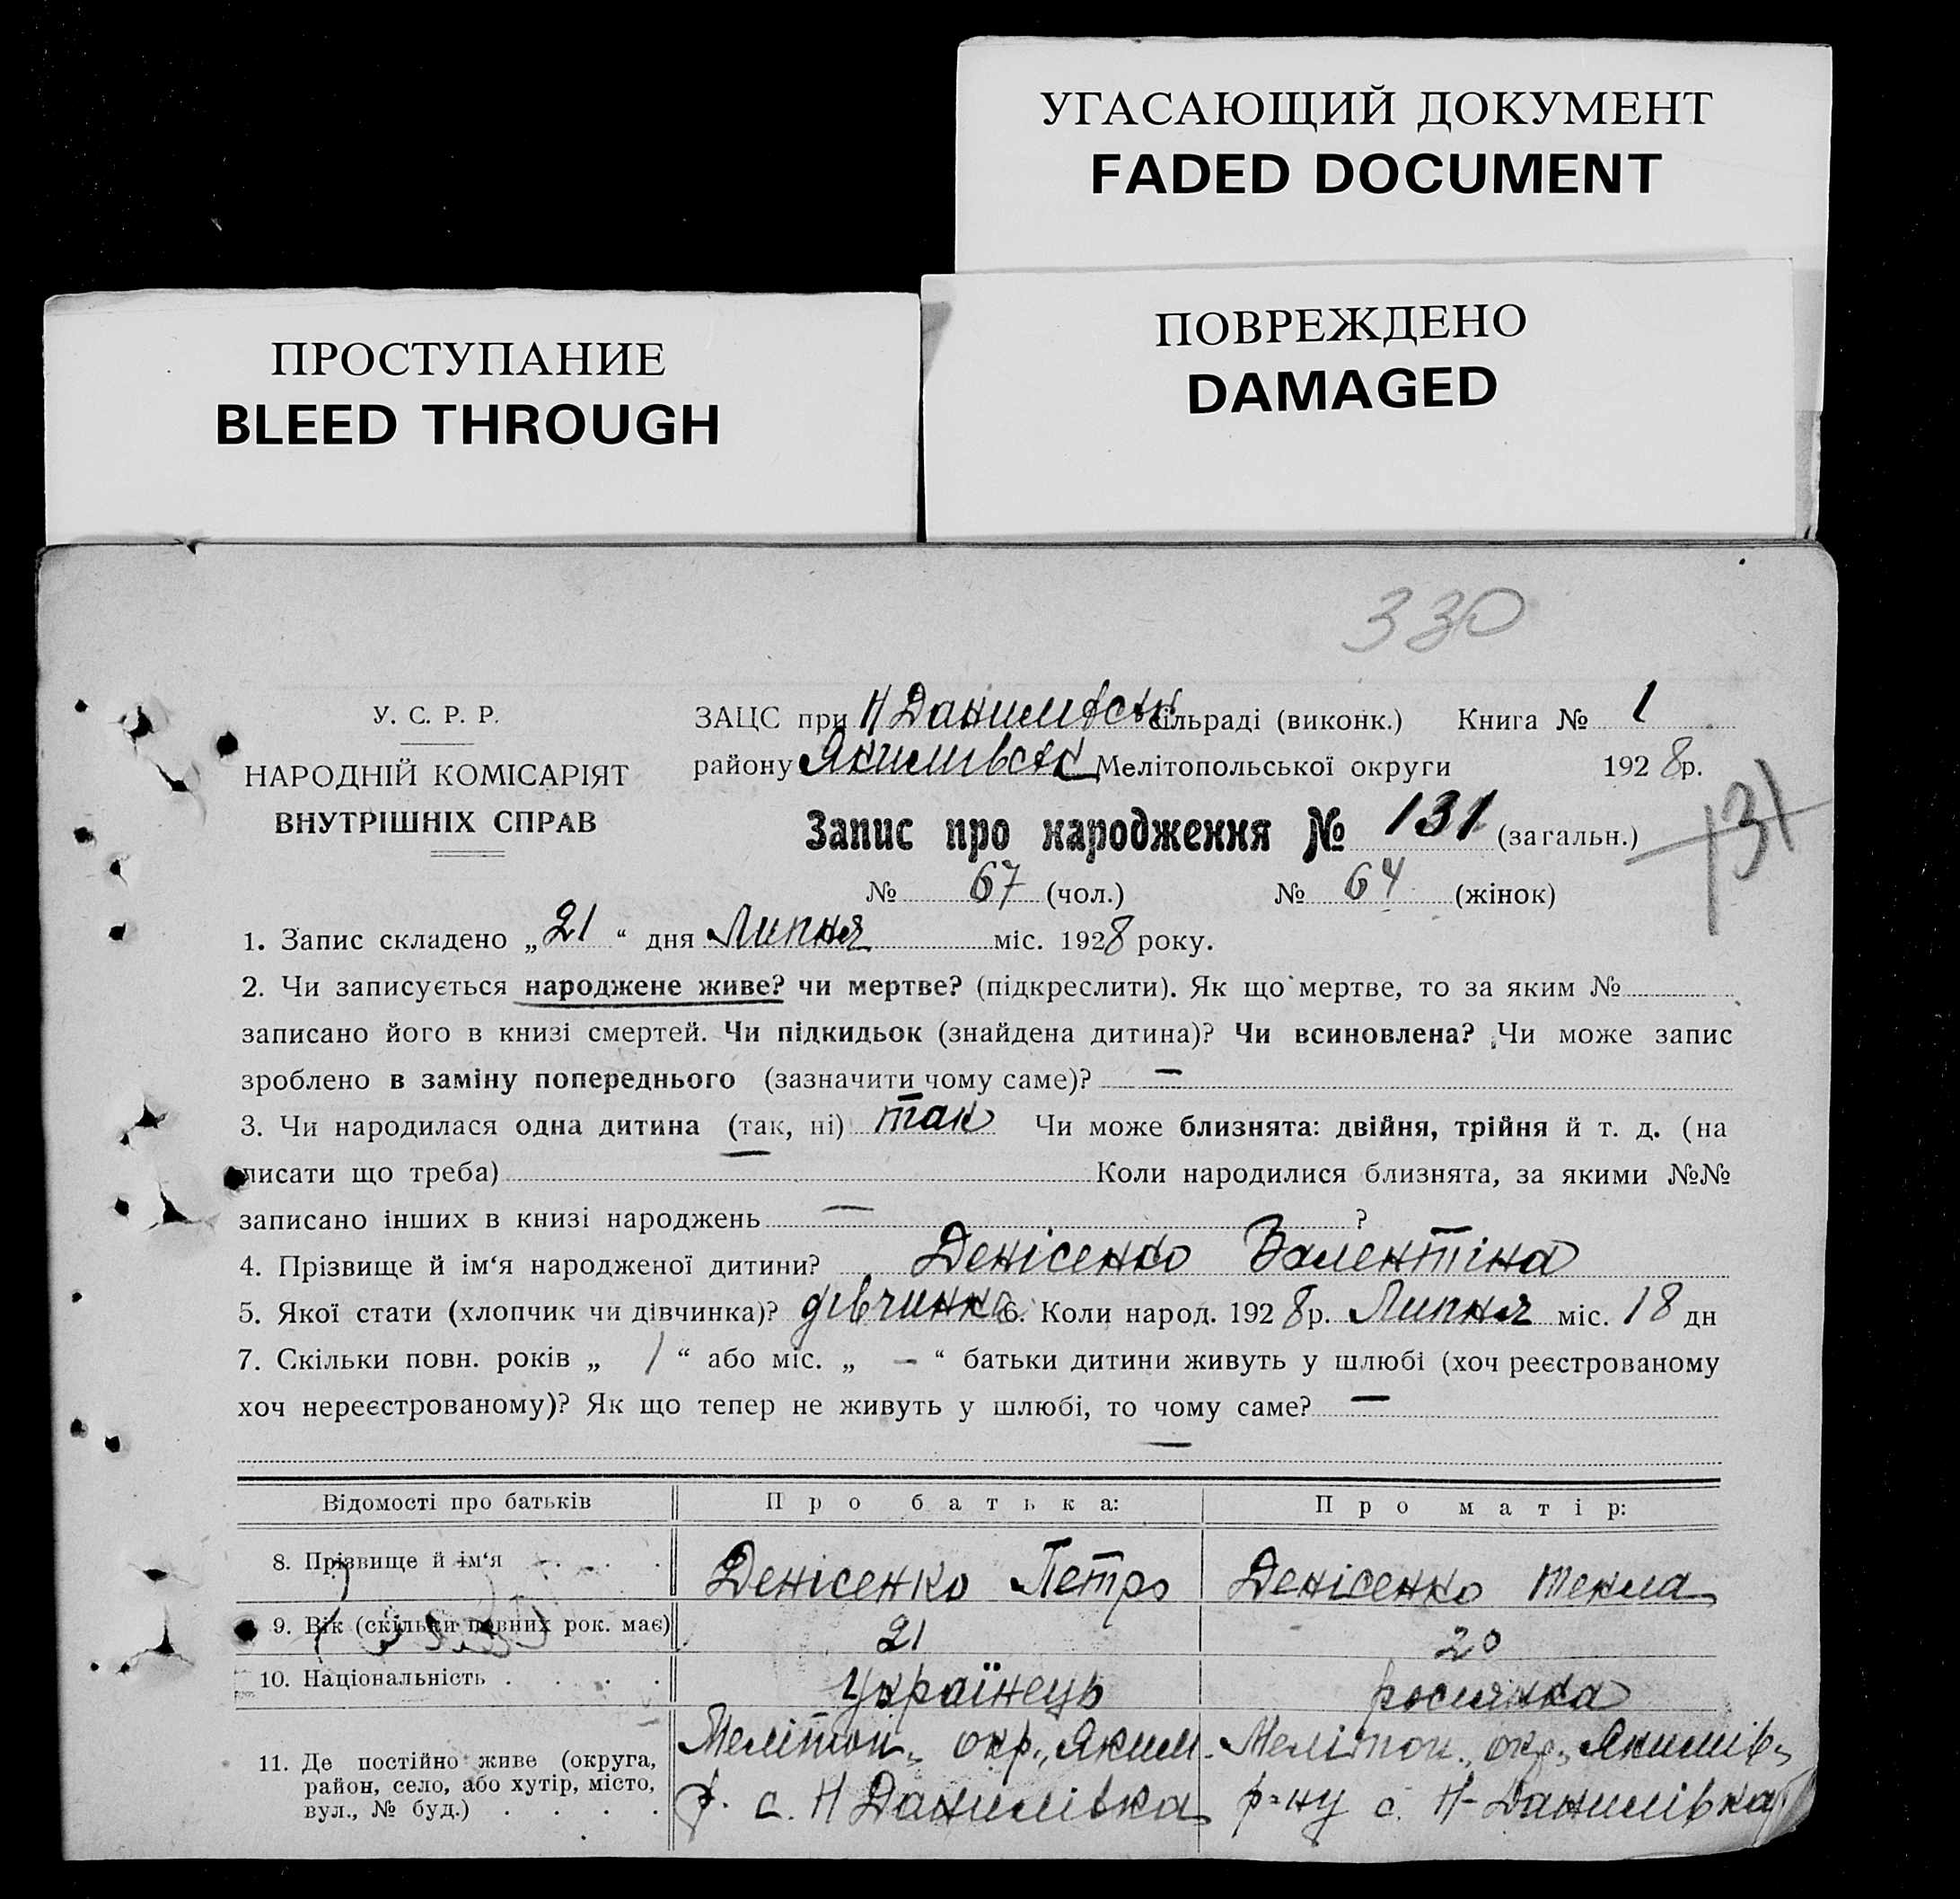 УГАСАЮЩИЙ ДОКУМЕНТ
FADED DOCUMENT
ПОВРЕЖДЕНО
DAMAGED
ПРОСТУПАНИЕ
BLEED THROUGH
330
У. С. Р. Р.
НАРОДНІЙ КОМІСАРІЯТ
ВНУТРІШНІХ СПРАВ
ЗАЦС при Н Данилівськ сільраді (виконк.) Книга № 1
району Якимівськ Мелітопольської округи 1928 р.
Запис про народження № 131 (загальн.) 131
№ 67 (чол.) № 64 (жінок)
1. Запис складено „21“ дня Липня міс. 1928 року.
2. Чи записується народжене живе? чи мертве? (підкреслити). Як що мертве, то за яким №
записано його в книзі смертей. Чи підкидьок (знайдена дитина)? Чи всиновлена? Чи може запис
зроблено в заміну попереднього (зазначити чому саме)? —
3. Чи народилася одна дитина (так, ні) так Чи може близнята: двійня, трійня й т. д. (на
писати що треба) — Коли народилися близнята, за якими №№
записано інших в книзі народжень — ?
4. Прізвище й ім‘я народженої дитини? Денісенко Валентіна
5. Якої стати (хлопчик чи дівчинка)? дівчинка 6. Коли народ. 1928 р. Липня міс. 18 дн
7. Скільки повн. років „ 1 “ або міс. „ — “ батьки дитини живуть у шлюбі (хоч реєстрованому
хоч нереєстрованому)? Як що тепер не живуть у шлюбі, то чому саме? —
—
Відомості про батьків Про батька: Про матір:
8. Прізвище й ім‘я . . . . Денісенко Петро Денісенко Текла
9. Вік (скільки повних рок. має) 21 20
10. Національність . . . . Українець росиянка
11. Де постійно живе (округа, район, село, або хутір, місто, вул., № буд.) . . . .
Мелітоп., окр., Яким. р. с. Н Данилівка
Мелітоп., окр., Якимів., р-ну с. Н-Данилівка